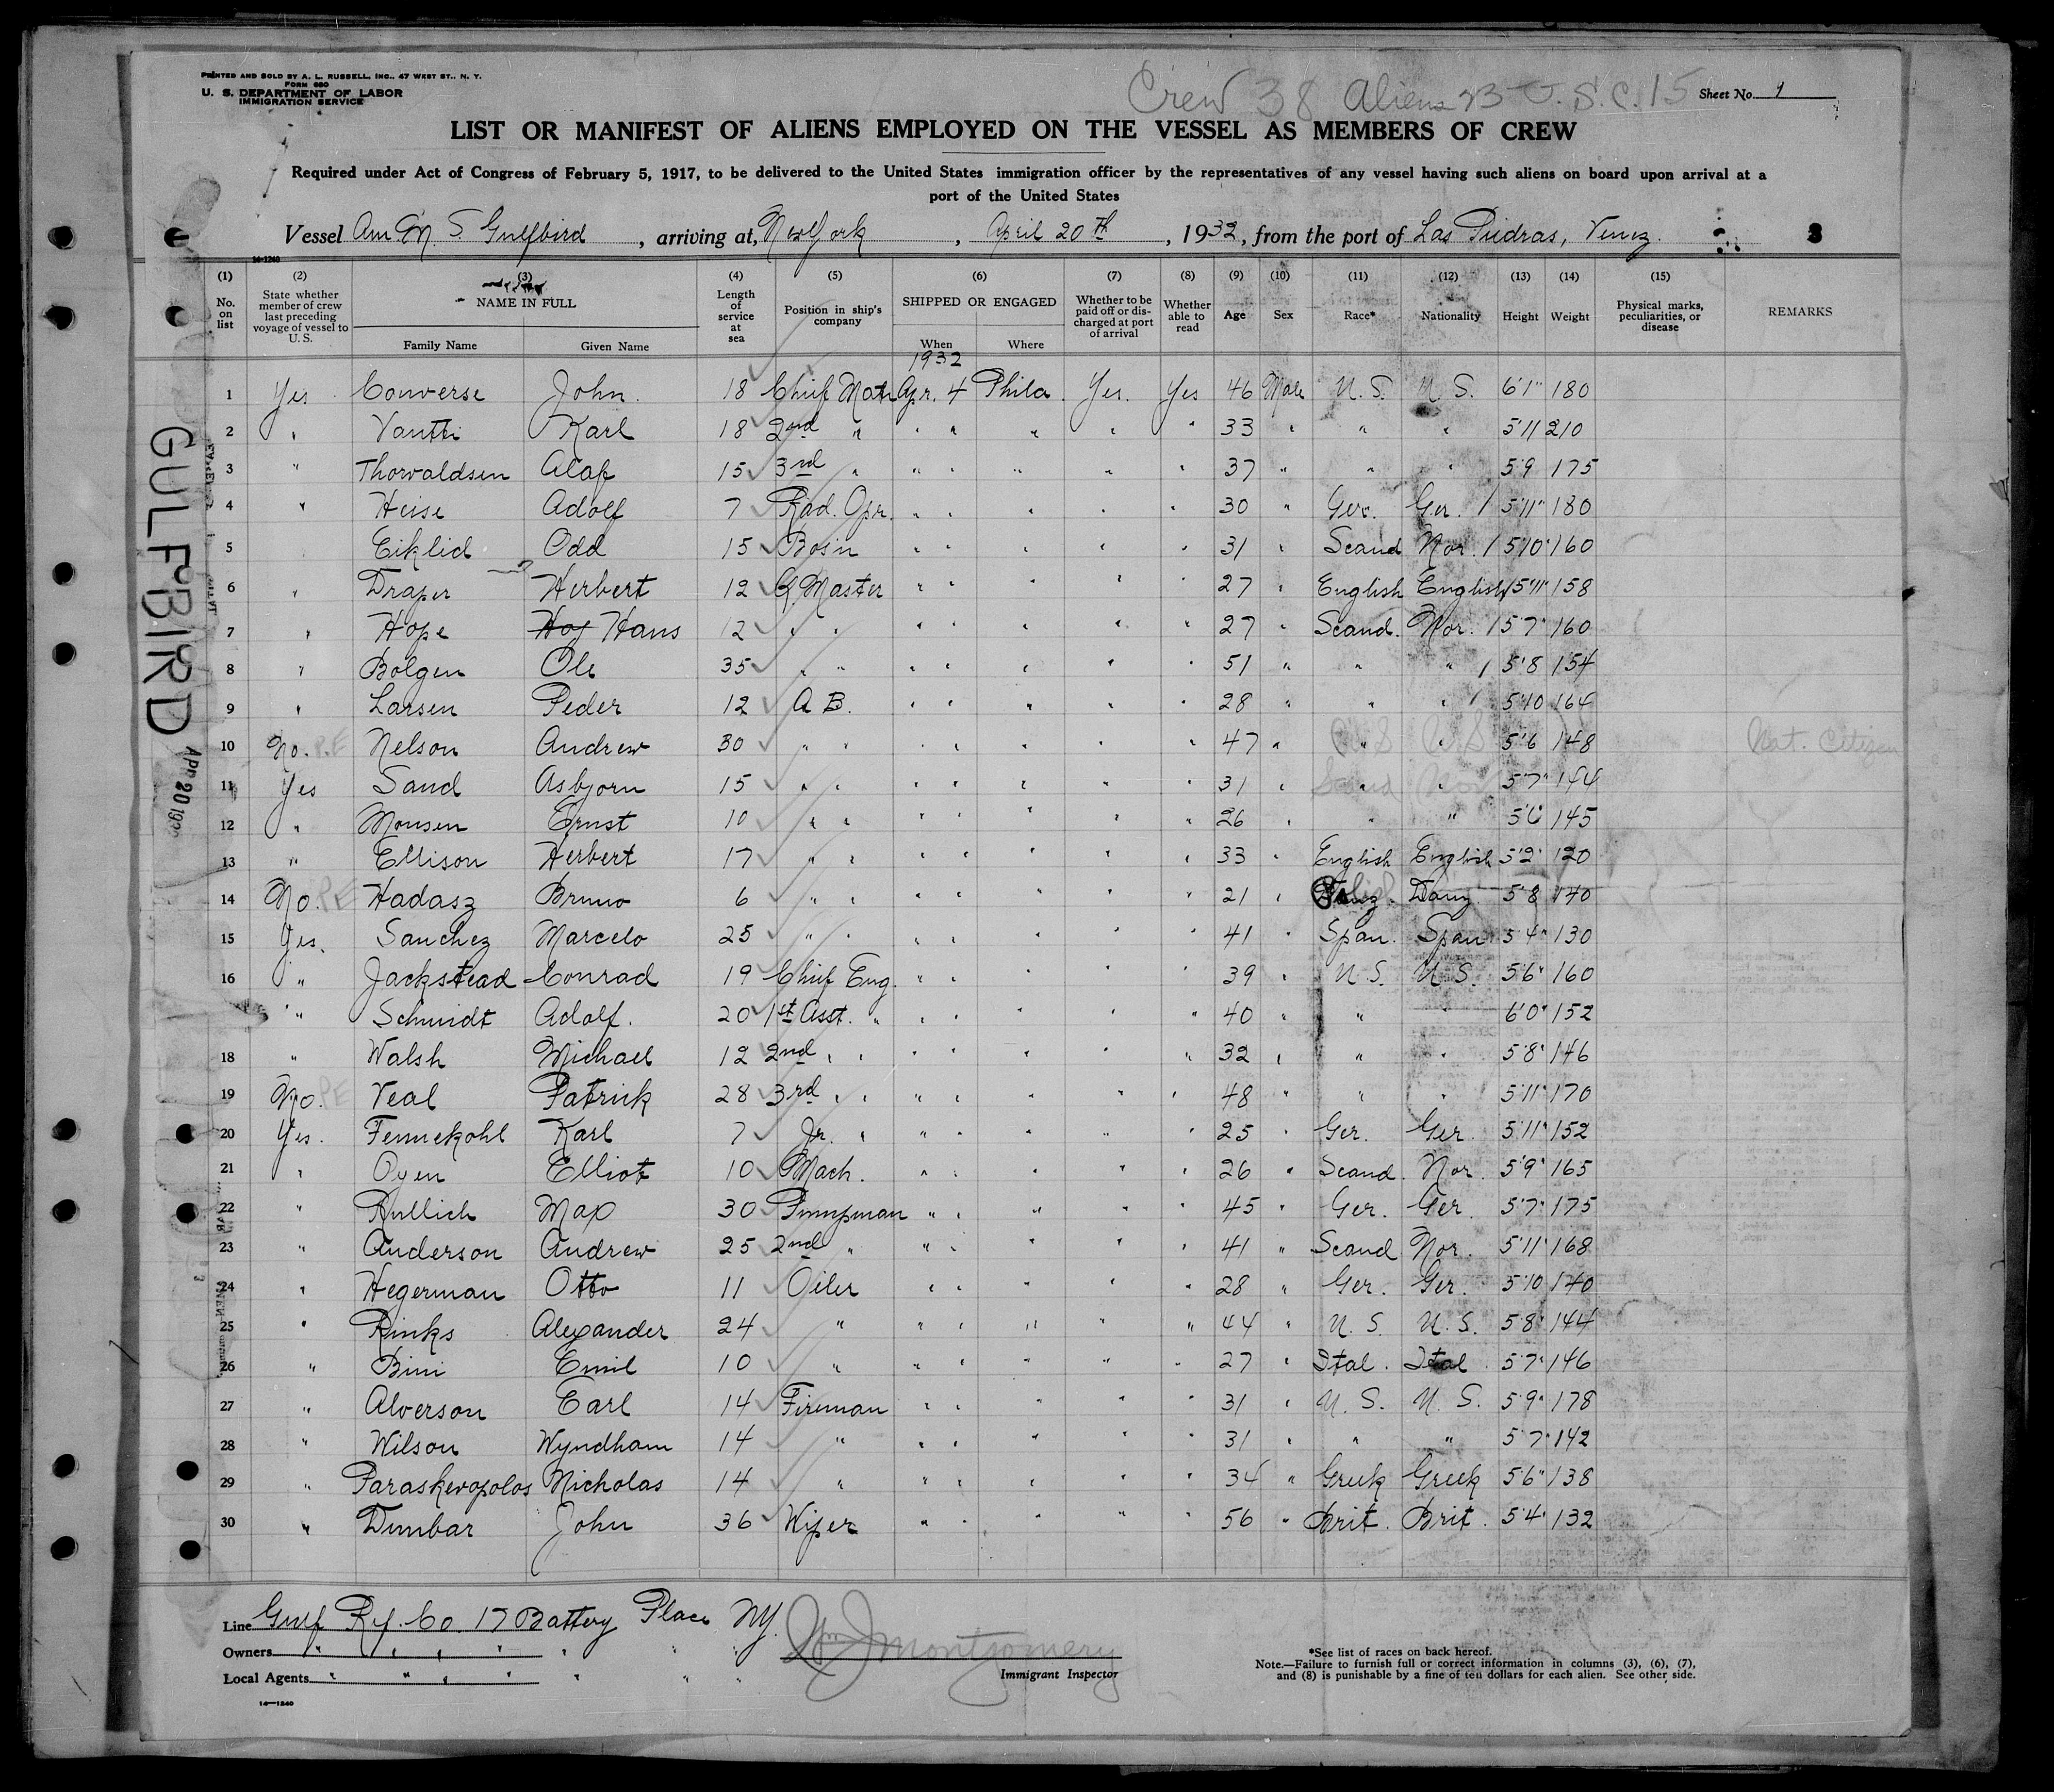 PRINTED AND SOLD BY A. L. RUSSELL, INC., 47 WEST ST., N. Y.
FORM 680
U. S. DEPARTMENT OF LABOR
IMMIGRATION SERVICE
Crew 38 Aliens 23 U.S.C. 15
Sheet No. 1
LIST OR MANIFEST OF ALIENS EMPLOYED ON THE VESSEL AS MEMBERS OF CREW
Required under Act of Congress of February 5, 1917, to be delivered to the United States immigration officer by the representatives of any vessel having such aliens on board upon arrival at a
port of the United States
Vessel Am M. S. Gulfbird, arriving at, New York, April 20th, 1932, from the port of Las Piedras, Venez. 3
14-1240
(1) (2) (3) (4) (5) (6) (7) (8) (9) (10) (11) (12) (13) (14) (15)
No. on list
State whether member of crew last preceding voyage of vessel to U. S.
NAME IN FULL
Family Name
Given Name
Length of service at sea
Position in ship's company
SHIPPED OR ENGAGED
When
Where
Whether to be paid off or discharged at port of arrival
Whether able to read
Age
Sex
Race*
Nationality
Height
Weight
Physical marks, peculiarities, or disease
REMARKS
1932
1 Yes Converse John. 18 Chief Mate Apr. 4 Phila. Yes. Yes 46 Male U. S. U. S. 6'1" 180
2 " Vantti Karl 18 2nd " " " " " " 33 " " " 5'11 210
3 " Thorvaldsen Olaf 15 3rd " " " " " " 37 " " " 5'9 175
4 " Heise Adolf 7 Rad. Opr. " " " " " 30 " Ger. Ger. / 5'11" 180
5 Eiklid Odd 15 Bos'n " " " " " 31 " Scand Nor. / 5'10" 160
6 " Draper Herbert 12 Q. Master " " " " 27 " English English / 5'11" 158
7 " Hope Hans 12 " " " " " " " 27 " Scand. Nor. / 5'7" 160
8 " Bolgen Ole 35 " " " " " " " 51 " " " / 5'8 154
9 " Larsen Peder 12 A B. " " " " " 28 " " " / 5'10 164
10 No. P.E Nelson Andrew 30 " " " " " " " 47 " U S U S 5'6 148 Nat. Citizen
11 Yes Sand Asbjorn 15 " " " " " " " 31 " Scand Nor 5'7" 144
12 " Monsen Ernst 10 " " " " " " 26 " " " 5'6 145
13 " Ellison Herbert 17 " " " " " " " 33 " English English 5'2" 120
14 No. P.E Hadasz Bruno 6 " " " " " " " 21 " Polish Danz. 5'8 140
15 Yes. Sanchez Marcelo 25 " " " " " " " 41 " Span. Span 5'4" 130
16 " Jackstead Conrad 19 Chief Eng. " " " " " 39 " U. S. U. S. 5'6" 160
" Schmidt Adolf. 20 1st Asst. " " " " " " 40 " " " 6'0" 152
18 " Walsh Michael 12 2nd " " " " " " " 32 " " " 5'8" 146
19 No. P.E Veal Patrick 28 3rd " " " " " " " 48 " " " 5'11" 170
20 Yes. Fennekohl Karl 7 Jr. " " " " " " 25 " Ger. Ger. 5'11" 152
21 " Oyen Elliot 10 Mach. " " " " " 26 " Scand. Nor. 5'9" 165
22 " Rullich Max 30 Pumpman " " " " " 45 " Ger. Ger. 5'7" 175
23 " Anderson Andrew 25 2nd " " " " " " 41 " Scand Nor. 5'11" 168
24 " Hegerman Otto 11 Oiler " " " " " 28 " Ger. Ger. 5'10 140
25 " Rinks Alexander 24 " " " " " " 44 " U. S. U. S. 5'8" 144
26 " Bini Emil 10 " " " " " " 27 " Ital. Ital 5'7" 146
27 " Alverson Earl 14 Fireman " " " " " 31 " U. S. U. S. 5'9" 178
28 " Wilson Wyndham 14 " " " " " " 31 " " " 5'7" 142
29 " Paraskevopolos Nicholas 14 " " " " " " 34 " Greek Greek 5'6" 138
30 " Dunbar John 36 Wiper " " " " " 56 " Brit. Brit. 5'4" 132
GULFBIRD
APR 20 193
Line Gulf Ref. Co. 17 Battery Place NY.
Owners " " " " " " "
Local Agents " " " " " " "
Wm J Montgomery
Immigrant Inspector
14—1240
*See list of races on back hereof.
Note.—Failure to furnish full or correct information in columns (3), (6), (7),
and (8) is punishable by a fine of ten dollars for each alien. See other side.